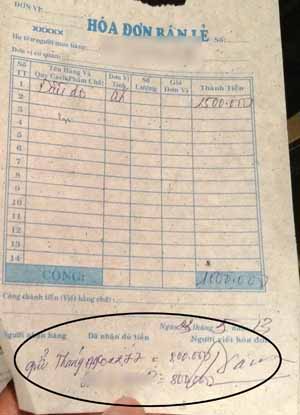 ĐƠN VỊ:
XXXXX
HÓA ĐƠN BÁN LẺ
Số:
Họ tên người mua hàng:
Đơn vị cơ quan:
Số TT
Tên Hàng Và Quy Cách Phẩm Chất
Đơn Vị Tính
Số Lượng
Giá Đơn Vị
Thành Tiền
1
2
1600.000
3
4
5
6
7
8
9
10
11
12
13
14
CỘNG:
1600.000
Cộng thành tiền (Viết bằng chữ):
Ngày tháng 5 năm 13
Người nhận hàng
Đã nhận đủ tiền
Người viết hóa đơn
800.000
800.000